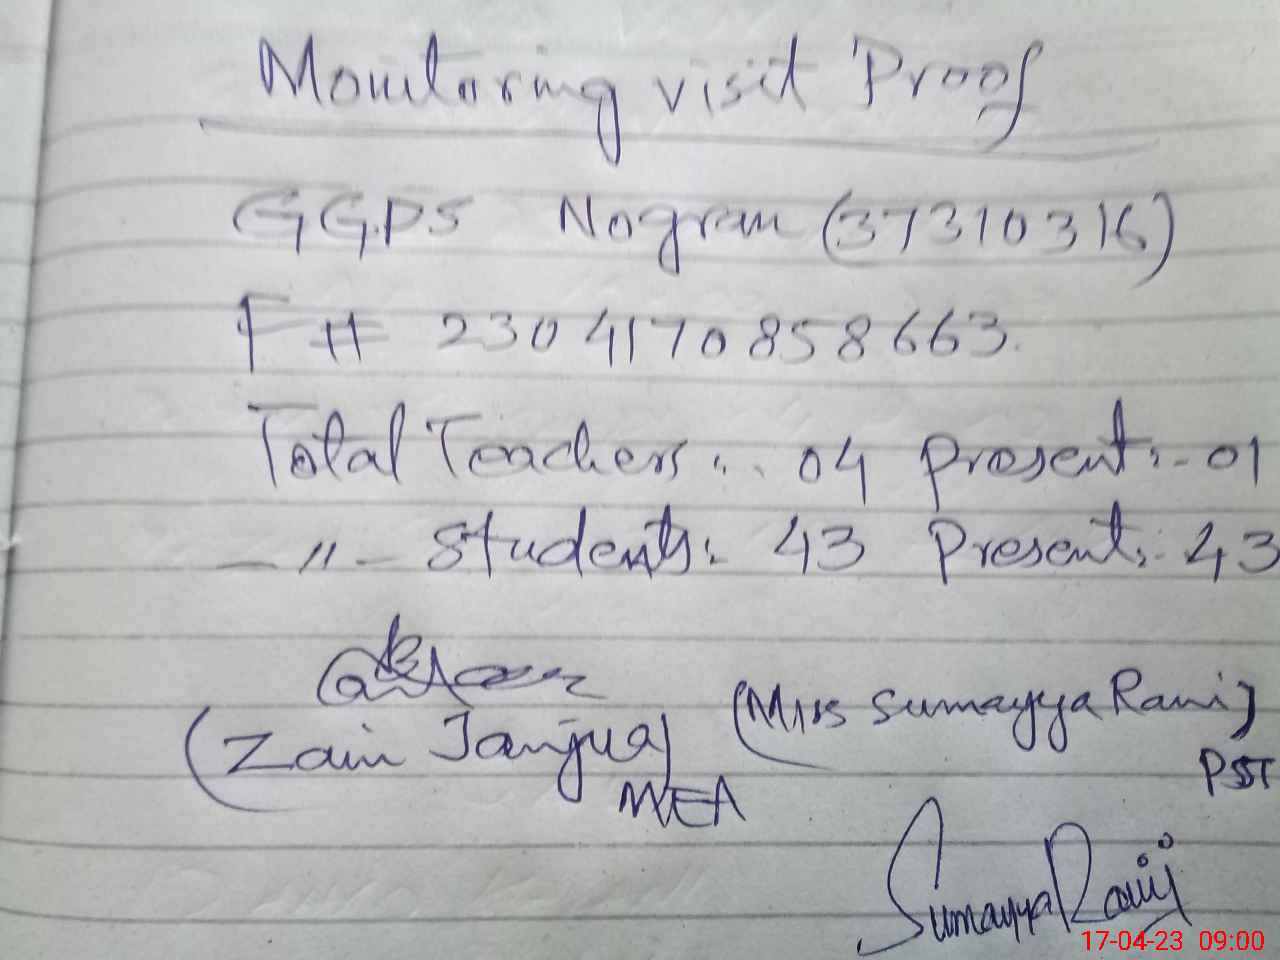 Monitoring visit Proof
GGPS Nogran (37310316)
F# 2304170858663.
Total Teachers:- 04 Present:- 01
-〃- Students: 43 Present:- 43
(Zain Janjua)
MEA
(Miss Sumayya Rani)
PST
Sumayya Rani
17-04-23 09:00